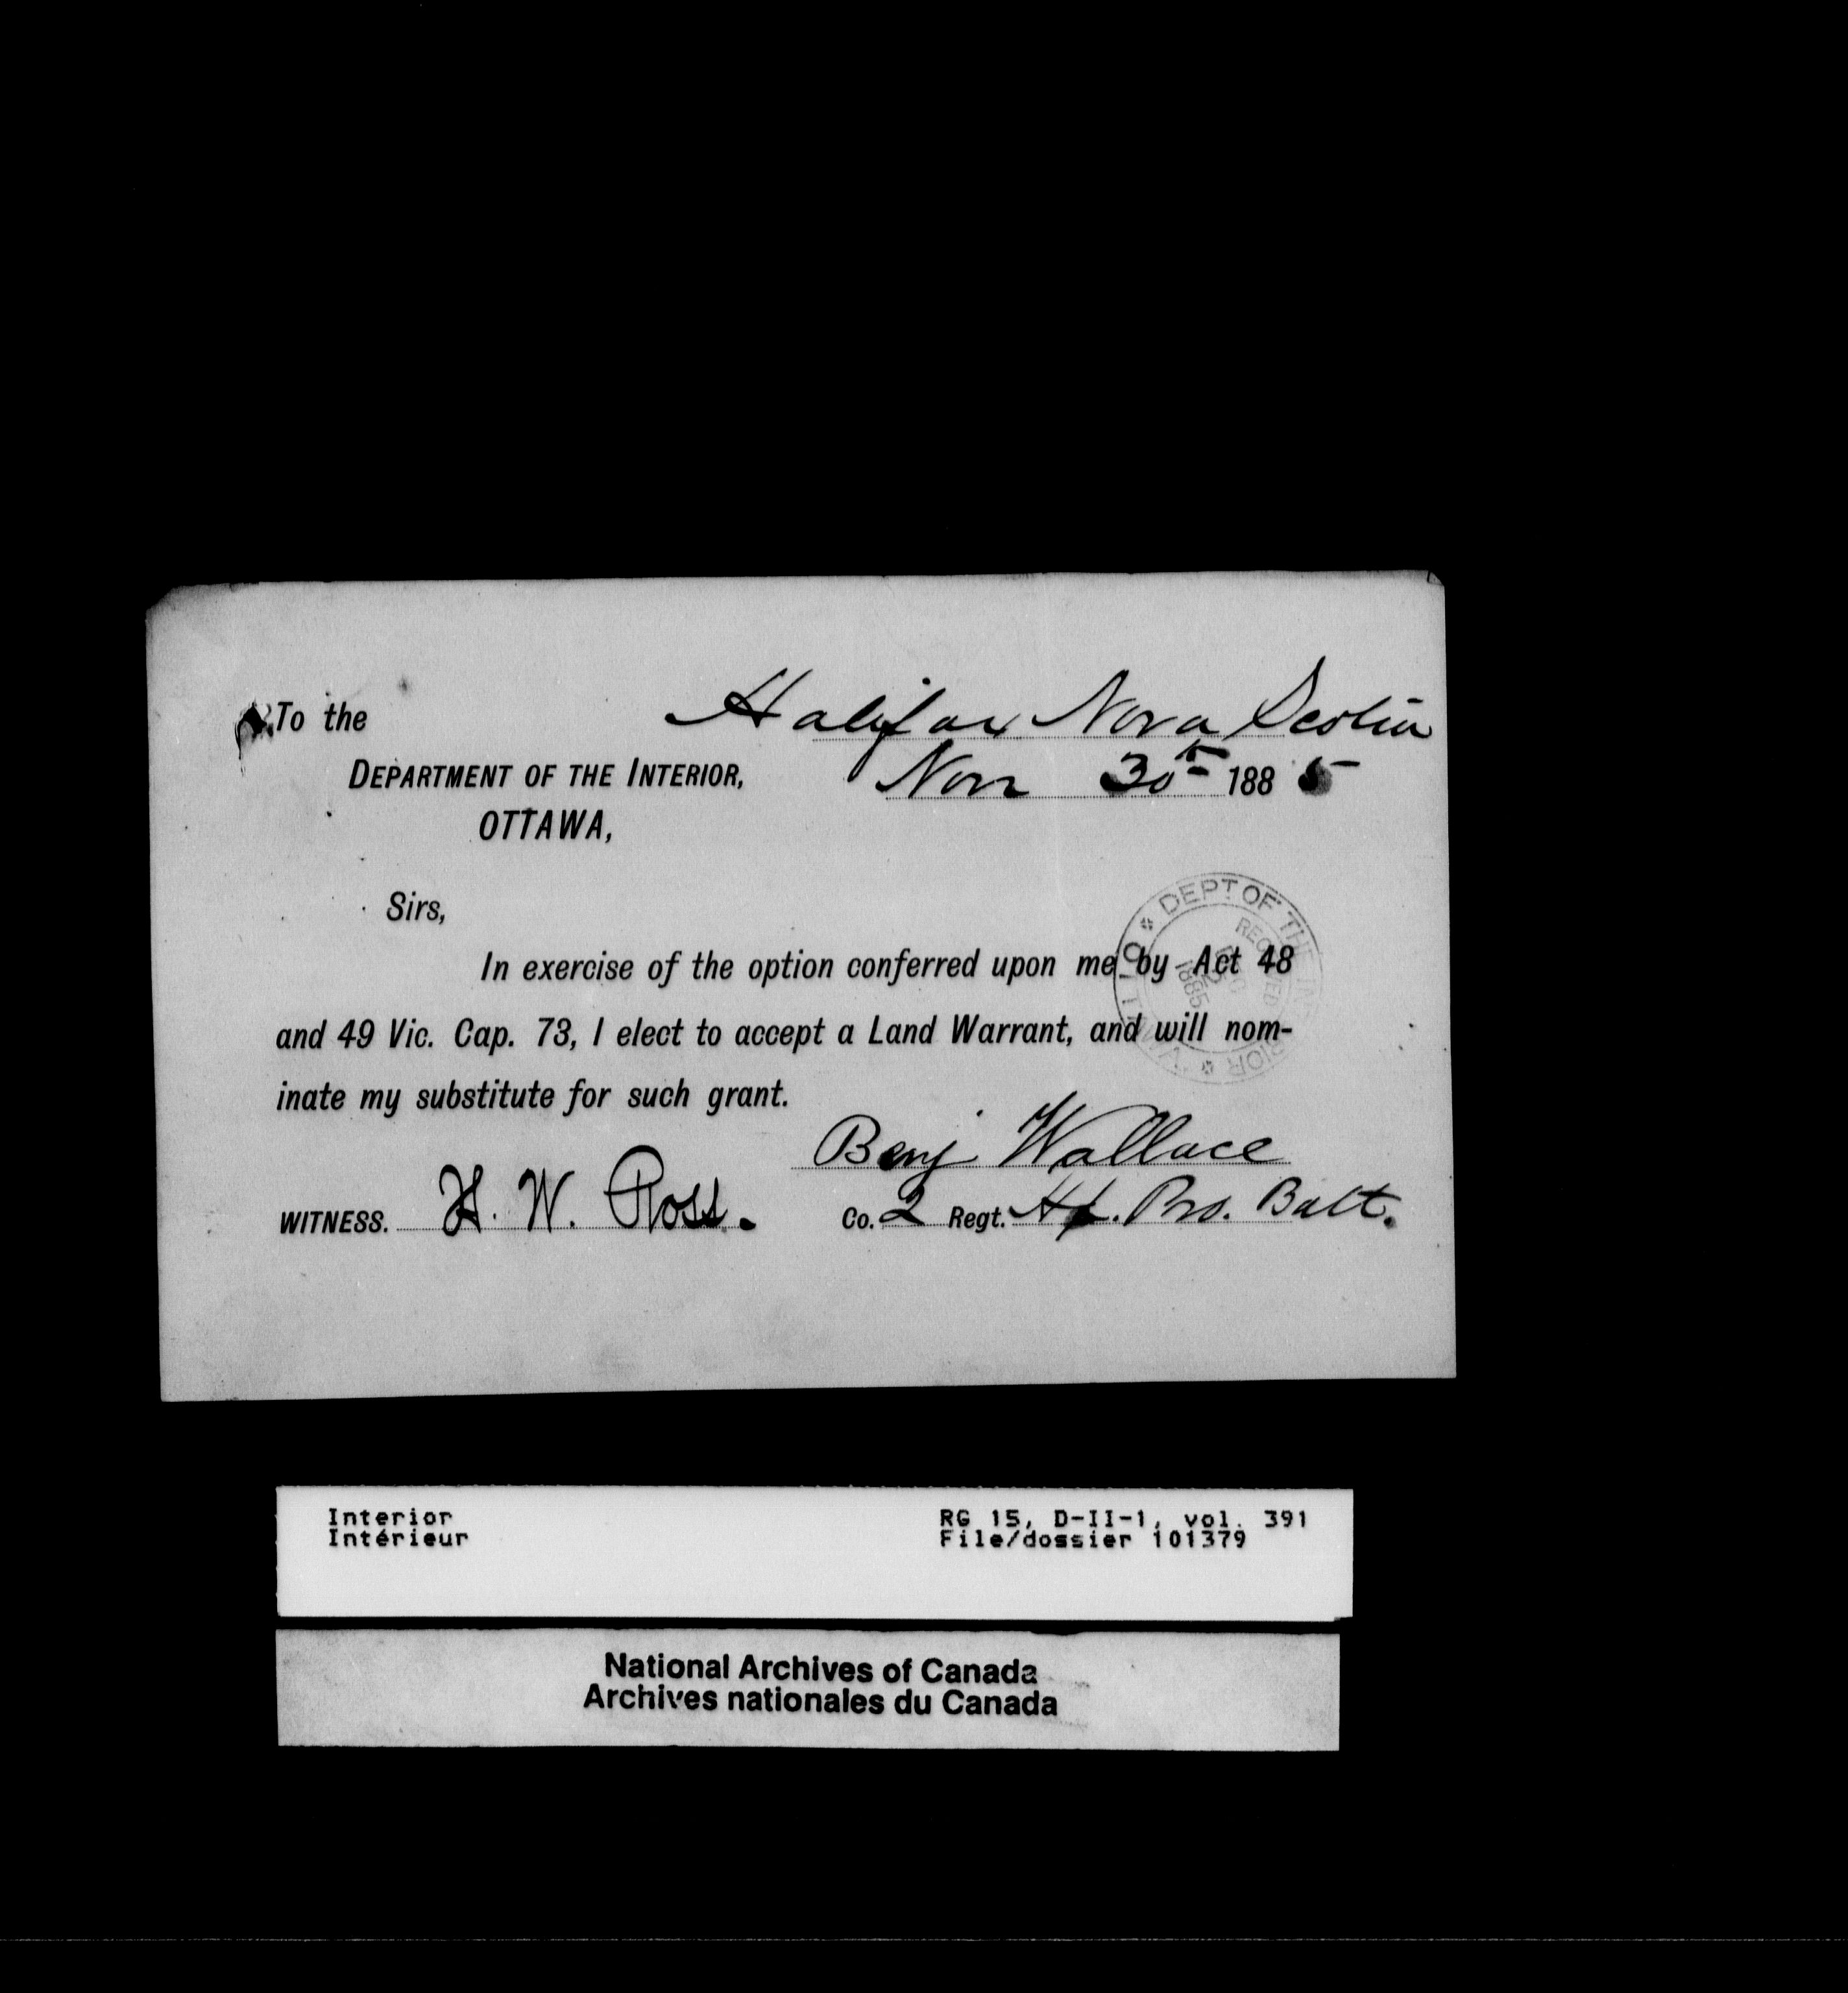 To the
Halifax Nova Scotia
DEPARTMENT OF THE INTERIOR,
Nov 30th 1885
OTTAWA,
Sirs,
In exercise of the option conferred upon me by Act 48
and 49 Vic. Cap. 73, I elect to accept a Land Warrant, and will nom-
inate my substitute for such grant.
Benj Wallace
WITNESS. H. W. Ross. Co. 2 Regt. Hx. Pro. Batt.
DEPT. OF THE INTERIOR * OTTAWA *
RECEIVED
1885
Interior
Intérieur
RG 15, D-II-1, vol. 391
File/dossier 101379
National Archives of Canada
Archives nationales du Canada